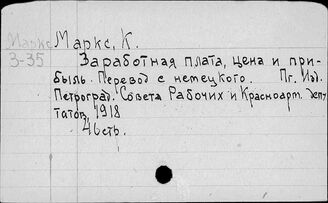 Маркс Маркс, К.
З-35 Заработная плата, цена и при-
быль. Перевод с немецкого. Пг. Изд.
Петроград. Совета Рабочих и Красноарм. Депу
татов, 1918
46 стр.